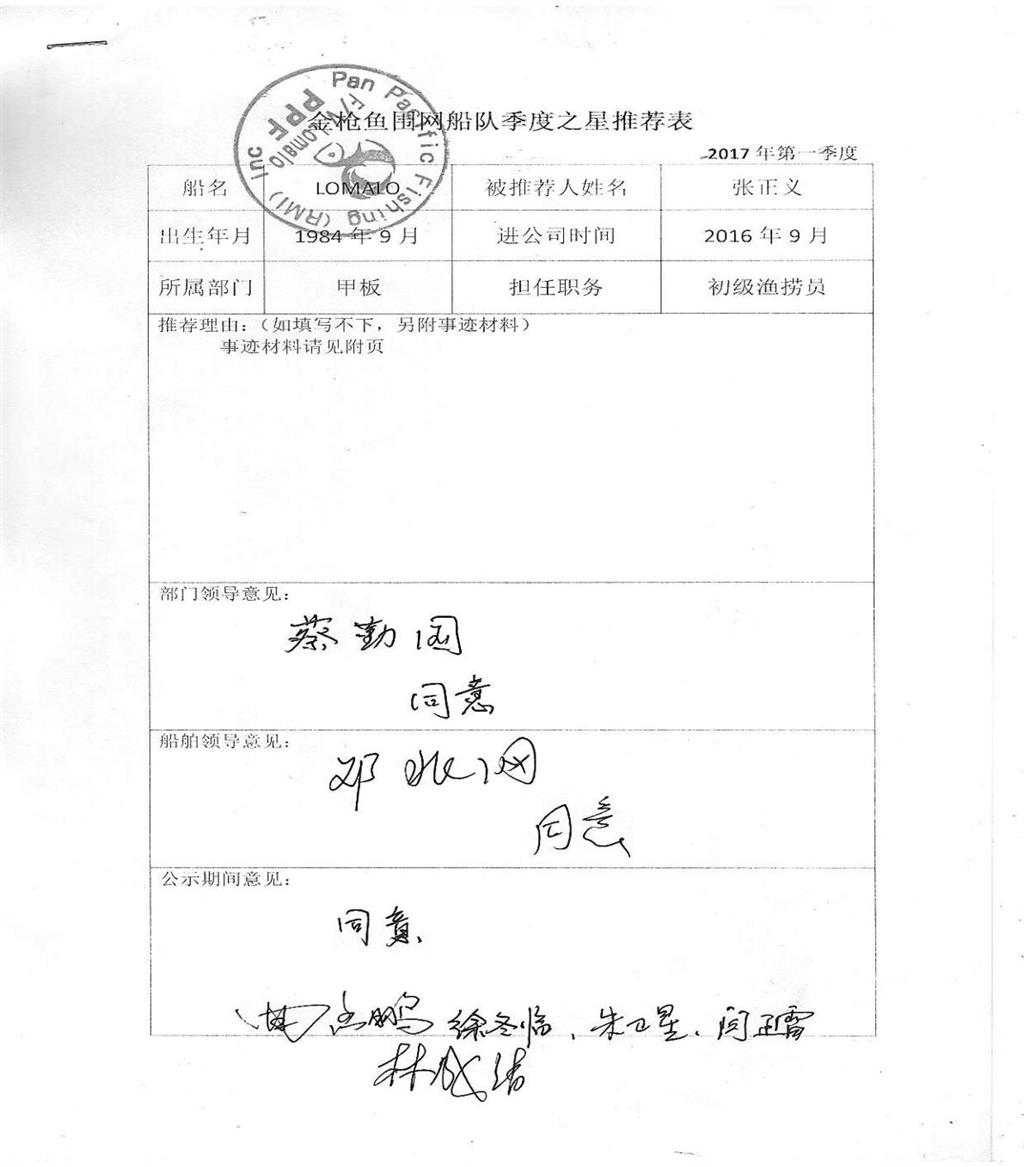 Pan Pacific Fishing (RMI) Inc
F/V Lomalo
PPF
金枪鱼围网船队季度之星推荐表
2017年第一季度
船名 LOMALO 被推荐人姓名 张正义
出生年月 1984年9月 进公司时间 2016年9月
所属部门 甲板 担任职务 初级渔捞员
推荐理由：（如填写不下，另附事迹材料）
事迹材料请见附页
部门领导意见：
蔡勤国
同意
船舶领导意见：
邓
同意
公示期间意见：
同意
徐冬临、朱卫星、闫正雷